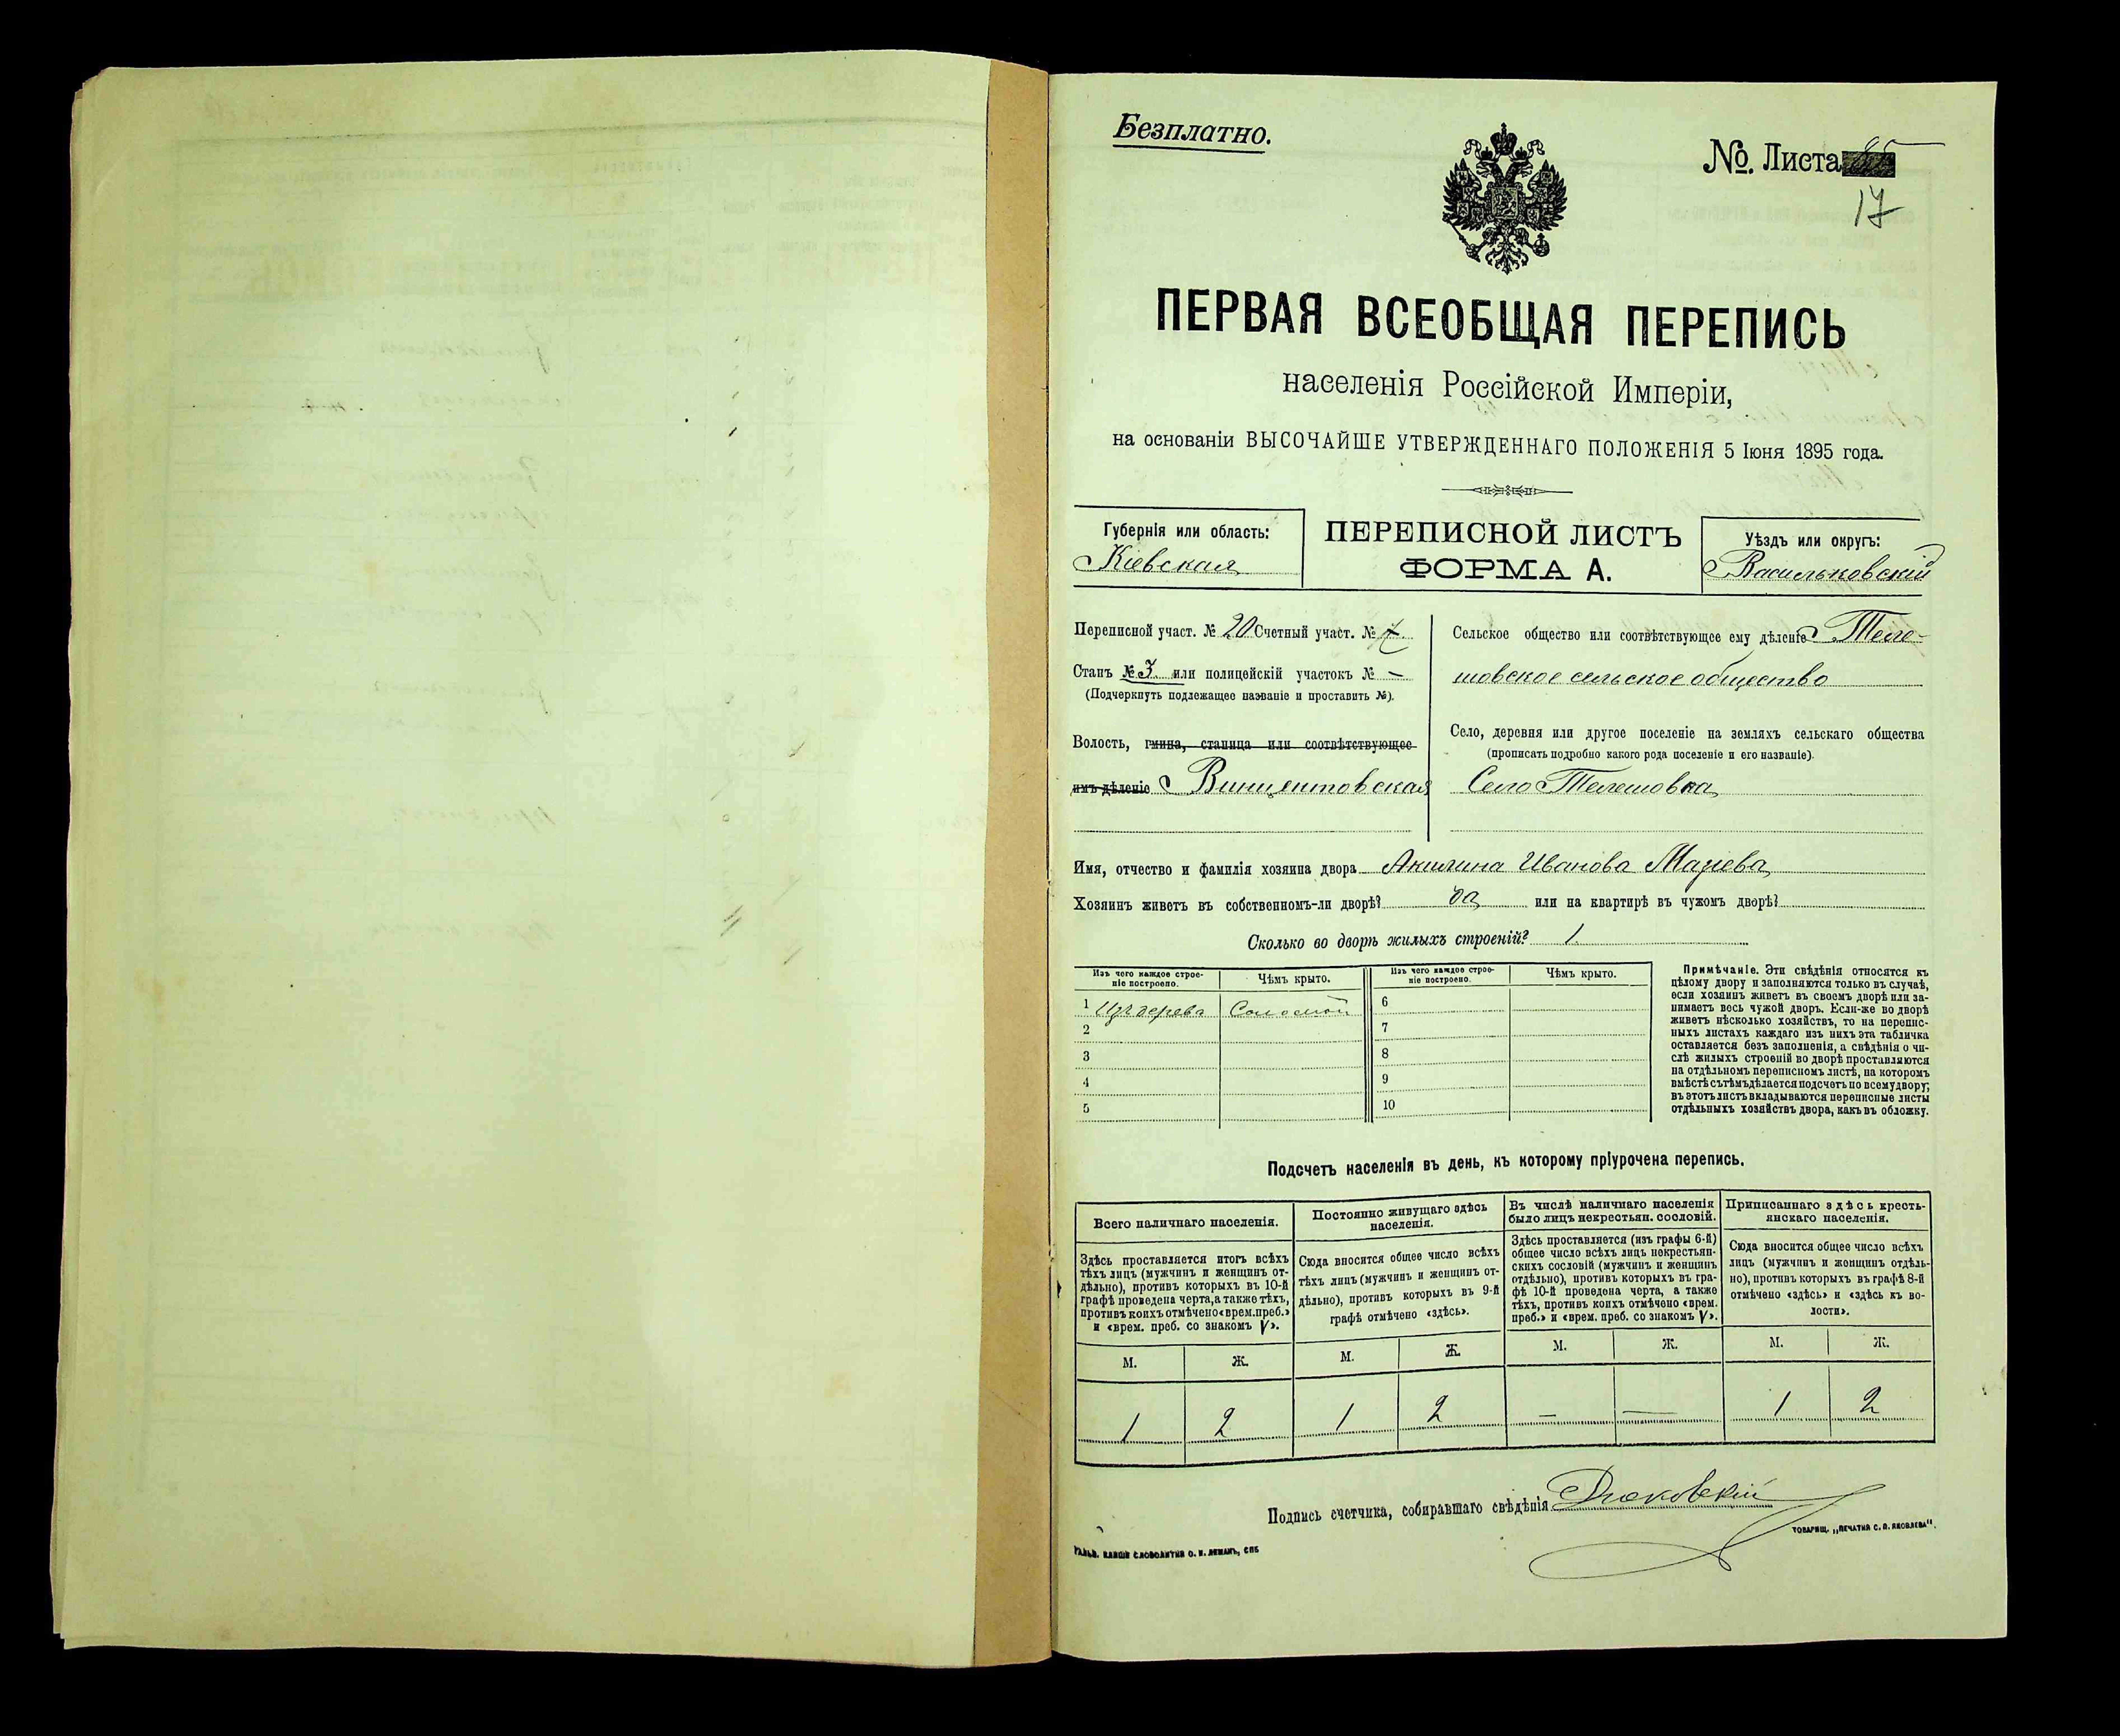 Безплатно.
№. Листа
17
ПЕРВАЯ ВСЕОБЩАЯ ПЕРЕПИСЬ
населенія Россійской Имперіи,
на основаніи ВЫСОЧАЙШЕ УТВЕРЖДЕННАГО ПОЛОЖЕНІЯ 5 Іюня 1895 года.
Губернія или область:
Кіевская
ПЕРЕПИСНОЙ ЛИСТЪ
ФОРМА А.
Уѣздъ или округъ:
Васильковскій
Переписной участ. № 20 Счетный участ. №
Станъ № 3 или полицейскій участокъ № —
(Подчеркнуть подлежащее названіе и проставить №).
Волость, гмина, станица или соотвѣтствующее
имъ дѣленіе Винцентовская
Сельское общество или соотвѣтствующее ему дѣленіе Теле-
шовское сельское общество
Село, деревня или другое поселеніе на земляхъ сельскаго общества
(прописать подробно какого рода поселеніе и его названіе).
Село Телешовка
Имя, отчество и фамилія хозяина двора Акилина Иванова
Хозяинъ живетъ въ собственномъ-ли дворѣ? да или на квартирѣ въ чужомъ дворѣ?
Сколько во дворѣ жилыхъ строеній? 1
Изъ чего каждое строе-
ніе построено.
Чѣмъ крыто.
Изъ чего каждое строе-
ніе построено.
Чѣмъ крыто.
1 Изъ дерева Соломой 6
2 7
3 8
4 9
5 10
Примѣчаніе. Эти свѣдѣнія относятся къ
цѣлому двору и заполняются только въ случаѣ,
если хозяинъ живетъ въ своемъ дворѣ или за-
нимаетъ весь чужой дворъ. Если-же во дворѣ
живетъ нѣсколько хозяйствъ, то на перепис-
ныхъ листахъ каждаго изъ нихъ эта табличка
оставляется безъ заполненія, а свѣдѣнія о чи-
слѣ жилыхъ строеній во дворѣ проставляются
на отдѣльномъ переписномъ листѣ, на которомъ
вмѣстѣ съ тѣмъ дѣлается подсчетъ по всему двору;
въ этотъ листъ вкладываются переписные листы
отдѣльныхъ хозяйствъ двора, какъ въ обложку.
Подсчетъ населенія въ день, къ которому пріурочена перепись.
Всего наличнаго населенія.
Здѣсь проставляется итогъ всѣхъ
тѣхъ лицъ (мужчинъ и женщинъ от-
дѣльно), противъ которыхъ въ 10-й
графѣ проведена черта, а также тѣхъ,
противъ коихъ отмѣчено «врем. преб.»
и «врем. преб. со знакомъ V».
Постоянно живущаго здѣсь
населенія.
Сюда вносится общее число всѣхъ
тѣхъ лицъ (мужчинъ и женщинъ от-
дѣльно), противъ которыхъ въ 9-й
графѣ отмѣчено «здѣсь».
Въ числѣ наличнаго населенія
было лицъ некрестьян. сословій.
Здѣсь проставляется (изъ графы 6-й)
общее число всѣхъ лицъ некрестьян-
скихъ сословій (мужчинъ и женщинъ
отдѣльно), противъ которыхъ въ гра-
фѣ 10-й проведена черта, а также
тѣхъ, противъ коихъ отмѣчено «врем.
преб.» и «врем. преб. со знакомъ V».
Приписаннаго здѣсь кресть-
янскаго населенія.
Сюда вносится общее число всѣхъ
лицъ (мужчинъ и женщинъ отдѣль-
но), противъ которыхъ въ графѣ 8-й
отмѣчено «здѣсь» и «здѣсь къ во-
лости».
М. Ж. М. Ж. М. Ж. М. Ж.
1 2 1 2 — — 1 2
Подпись счетчика, собиравшаго свѣдѣнія
ТОВАРИЩ. „ПЕЧАТНЯ С. П. ЯКОВЛЕВА".
СЛОВОЛИТНЯ О. И. ЛЕМАНЪ, СПБ